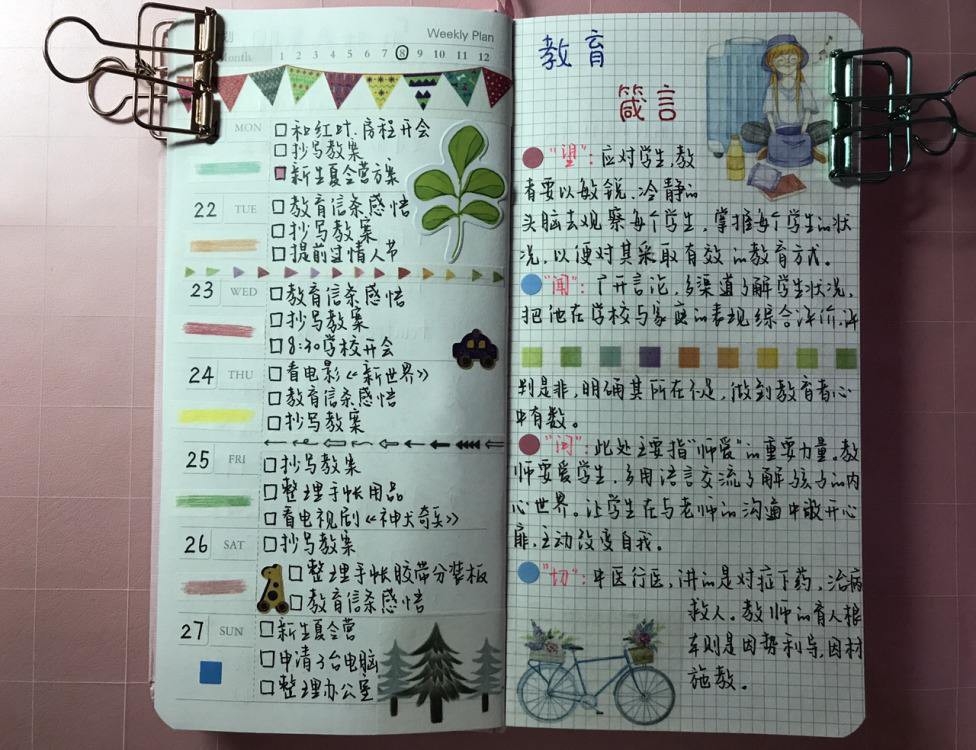 Weekly Plan
Month 1 2 3 4 5 6 7 8 9 10 11 12
MON
□和红叶、房程开会
□抄写教案
新生夏令营方案
22 TUE
□教育信条感悟
□抄写教案
□提前过情人节
23 WED
□教育信条感悟
□抄写教案
□8:30学校开会
24 THU
□看电影《新世界》
□教育信条感悟
□抄写教案
25 FRI
□抄写教案
□整理手帐用品
□看电视剧《神犬奇兵》
26 SAT
□抄写教案
□整理手帐胶带分装板
□教育信条感悟
27 SUN
□新生夏令营
□申请3台电脑
□整理办公室
教育
箴言
"望":应对学生,教
育要以敏锐、冷静的
头脑去观察每个学生,掌握每个学生的状
况,以便对其采取有效的教育方式。
"闻":广开言论,多渠道了解学生状况,
把他在学校与家庭的表现综合评价,评
判是非,明确其所在不足,做到教育者心
中有数。
"问":此处主要指"师爱"的重要力量。教
师要爱学生,多用语言交流了解孩子的内
心世界。让学生在与老师的沟通中敞开心
扉,主动改变自我。
"切":中医行医,讲的是对症下药,治病
救人。教师的育人根
本则是因势利导,因材
施教。